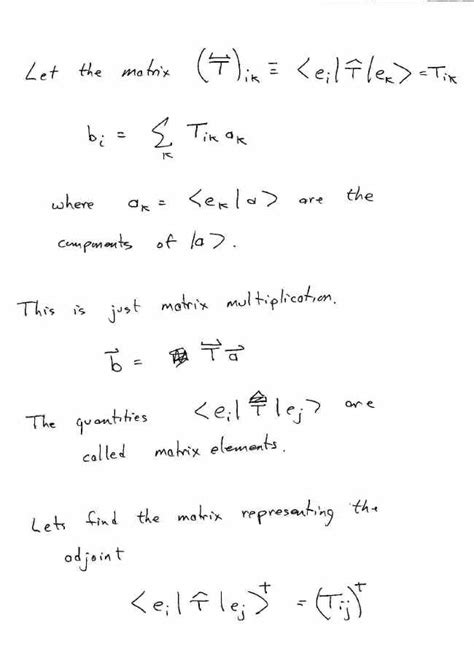 Let the matrix (T⃡)ᵢₖ ≡ <eᵢ|T̂|eₖ> = Tᵢₖ
bᵢ = ∑ₖ Tᵢₖ aₖ
where aₖ = <eₖ|a> are the
components of |a>.
This is just matrix multiplication.
b⃗ = T⃡ a⃗
The quantities <eᵢ|T̂|eⱼ> are
called matrix elements.
Lets find the matrix representing the
adjoint
<eᵢ|T̂|eⱼ>† = (Tᵢⱼ)†